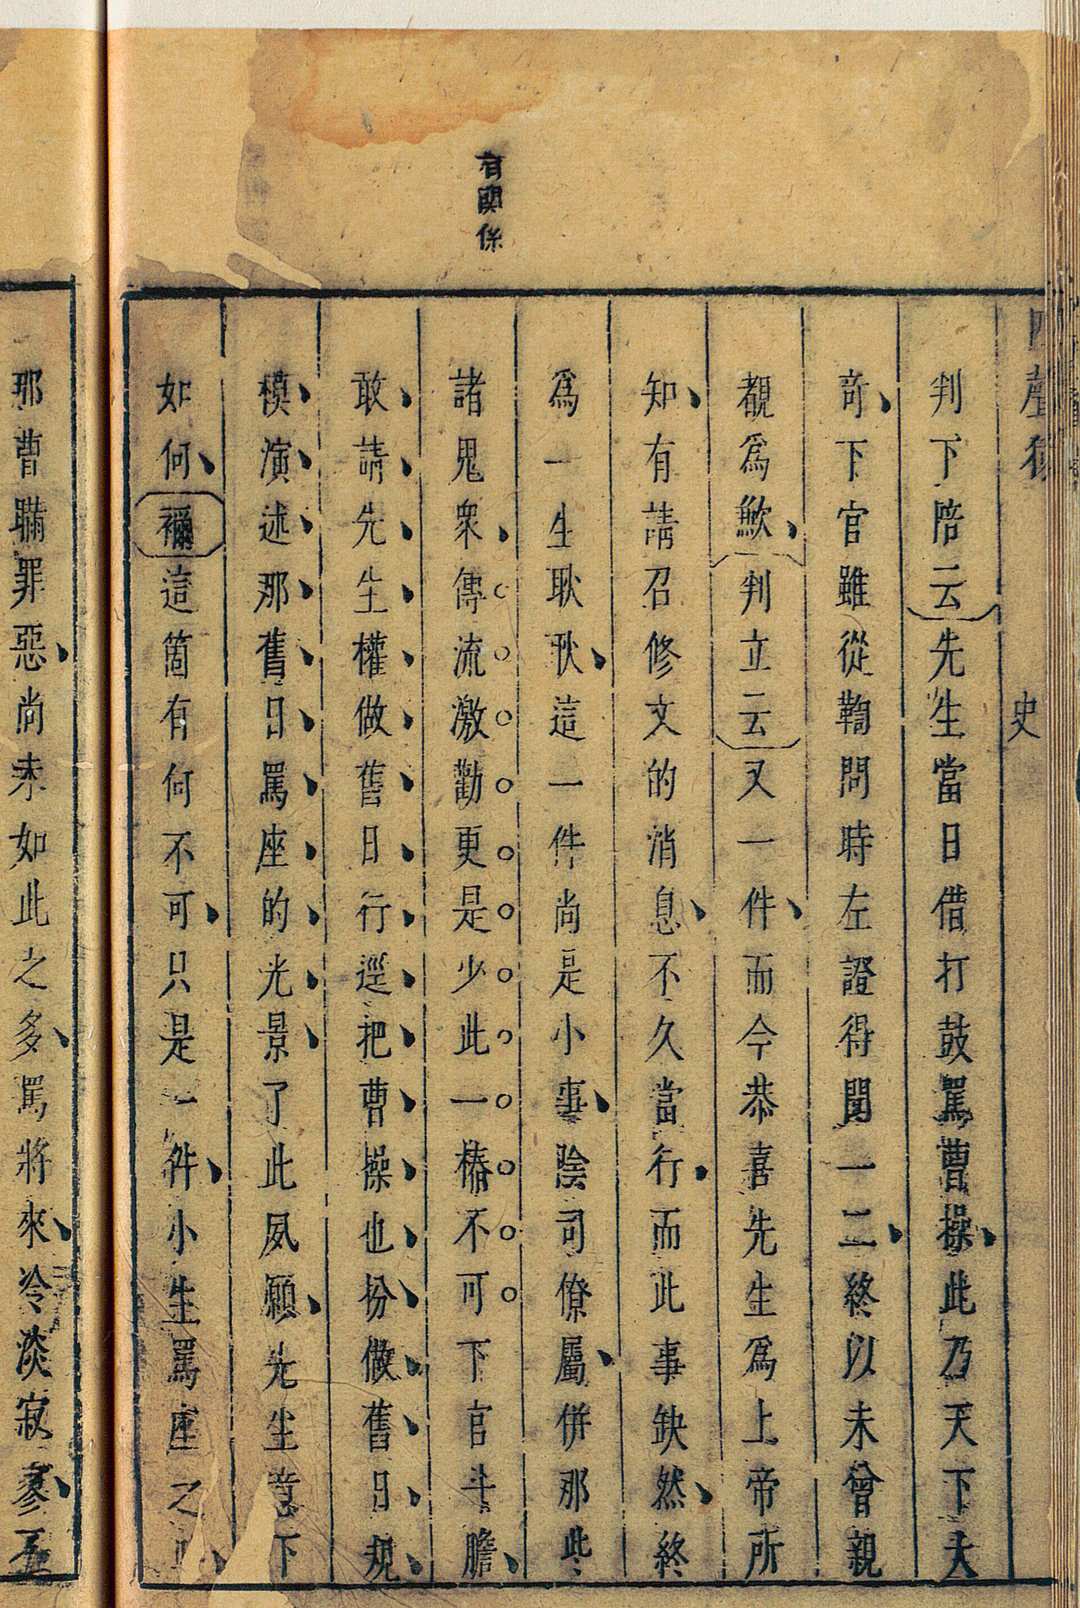 有關係
四聲猿
史
判下陪云先生當日借打鼓罵曹操此乃天下大
奇下官雖從鞫問時左證得聞一二終以未曾親
覩爲歉判立云又一件而今恭喜先生爲上帝所
知有請召修文的消息不久當行而此事缺然終
爲一生耿耿這一件尚是小事陰司僚屬併那些
諸鬼衆傳流激勸更是少此一樁不可下官斗膽
敢請先生權做舊日行逕把曹操也扮做舊日規
模演述那舊日罵座的光景了此夙願先生意下
如何禰這箇有何不可只是一件小生罵座之
那曹瞞罪惡尚未如此之多罵將來冷淡寂寥不